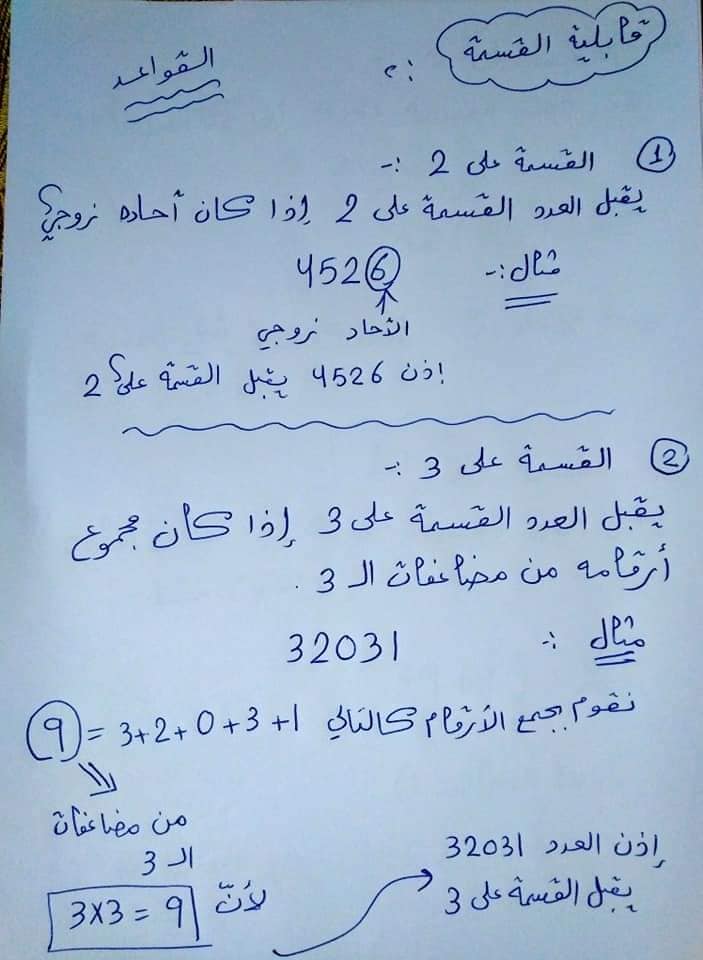 قابلية القسمة :
القواعد
1 القسمة على 2 :-
يقبل العدد القسمة على 2 إذا كان آحاده زوجي
مثال :- 4526
الآحاد زوجي
إذن 4526 يقبل القسمة على 2
2 القسمة على 3 :-
يقبل العدد القسمة على 3 إذا كان مجموع
أرقامه من مضاعفات الـ 3 .
مثال :- 32031
نقوم بجمع الأرقام كالتالي 3+2+0+3+1 = 9
من مضاعفات
الـ 3
لأنّ 3×3 = 9
إذن العدد 32031
يقبل القسمة على 3